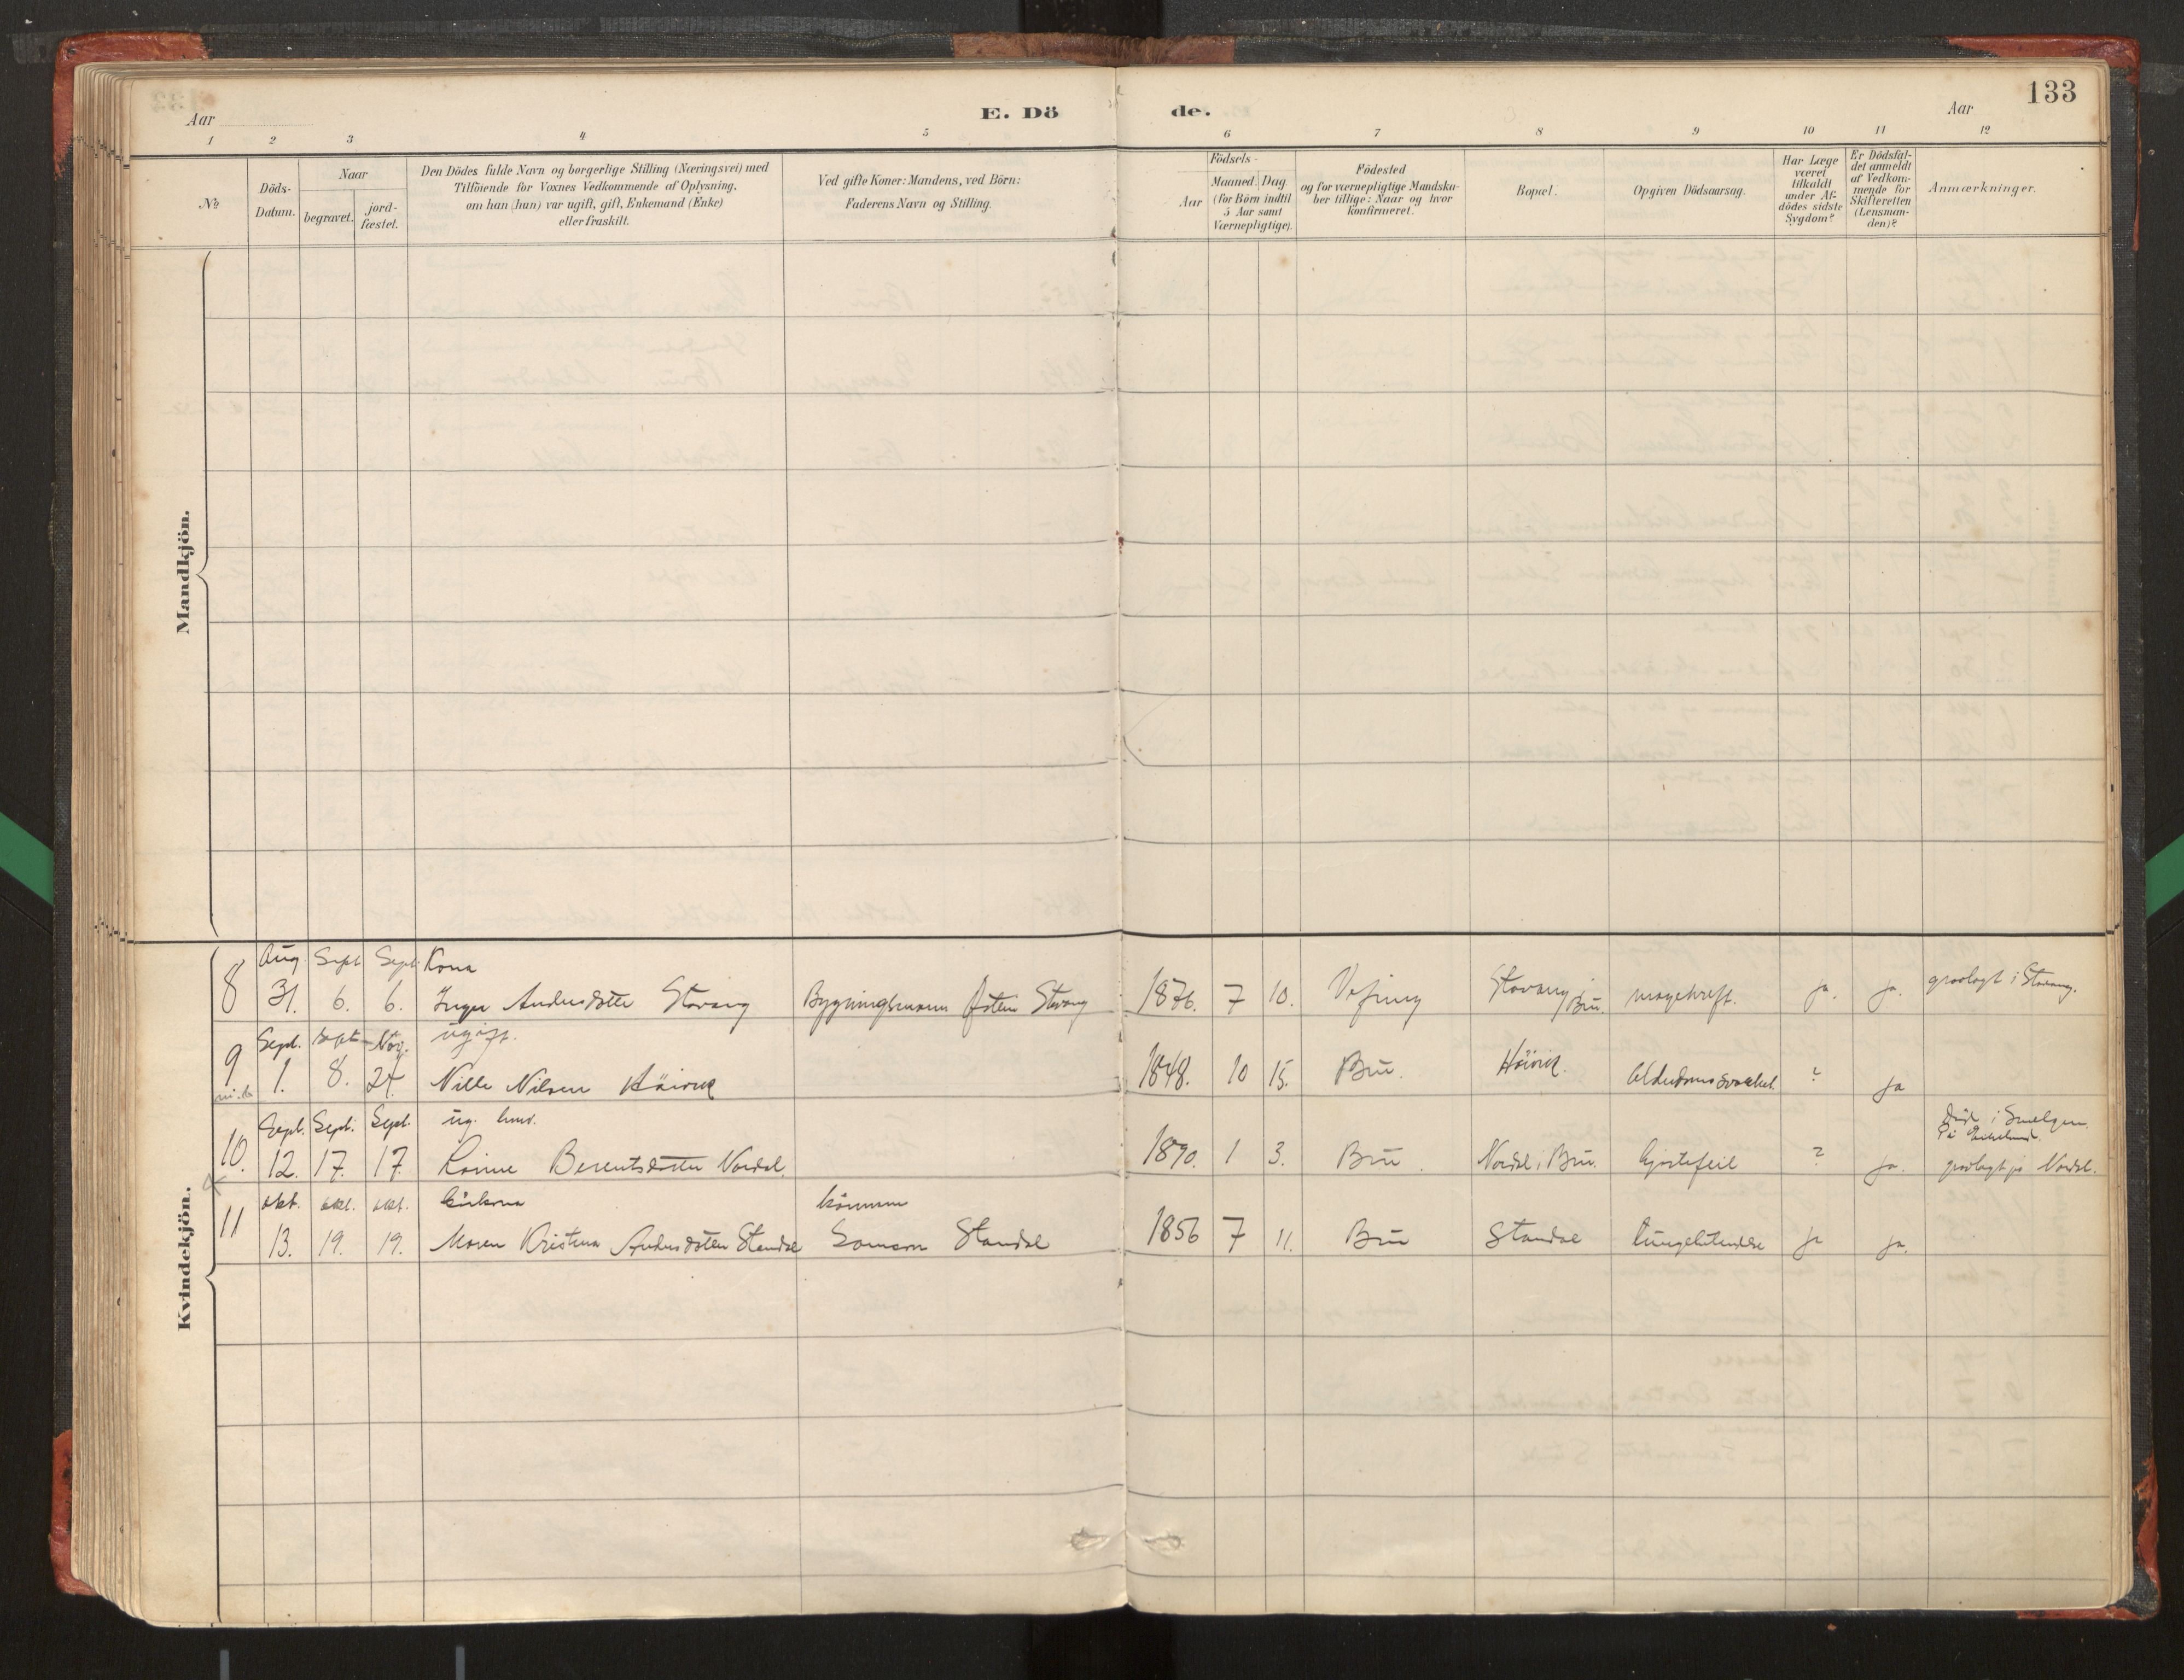 133
Aar
E. Dö
de.
Aar
1 2 3 4 5 6 7 8 9 10 11 12
№
Döds-
Datum.
Naar
begravet.
jord-
fæstet.
Den Dödes fulde Navn og borgerlige Stilling (Næringsvei) med
Tilföiende for Voxnes Vedkommende af Oplysning,
om han (hun) var ugift, gift, Enkemand (Enke)
eller fraskilt.
Ved gifte Koner: Mandens, ved Börn:
Faderens Navn og Stilling.
Födsels-
Aar
Maaned. Dag.
(for Börn indtil
5 Aar samt
Værnepligtige).
Födested
og for værnepligtige Mandska-
ber tillige: Naar og hvor
konfirmeret.
Bopæl.
Opgiven Dödsaarsag.
Har Læge
været
tilkaldt
under Af-
dödes sidste
Sygdom?
Er Dödsfal-
det anmeldt
af Vedkom-
mende for
Skifteretten
(Lensman-
den)?
Anmærkninger.
Mandkjön.
Kvindekjön.
Aug. Sept Sept. Kona
8 31. 6. 6. Inger Andersdotter Stavang Bygningsmann Østen Stavang 1876. 7 10. Vefring Stavang i Bru. magekreft. ja. ja. gravlagt i Stavang.
Sept. Sept Nov. ugift.
9 1. 8. 24. Nille Nilsen Höivik 1848. 10 15. Bru. Höivik. Alderdomssvakhet ? ja
Sept. Sept. Sept. ug.
10. 12. 17. 17. Berentsdotter Nordal. 1890. 1 3. Bru. Nordal i Bru. hjertefeil ? ja. gravlagt på Nordal.
okt. okt. okt.
11 13. 19. 19. Maren Kristina Andersdotter Standal Standal 1856 7 11. Bru Standal lungebetendelse ja ja.